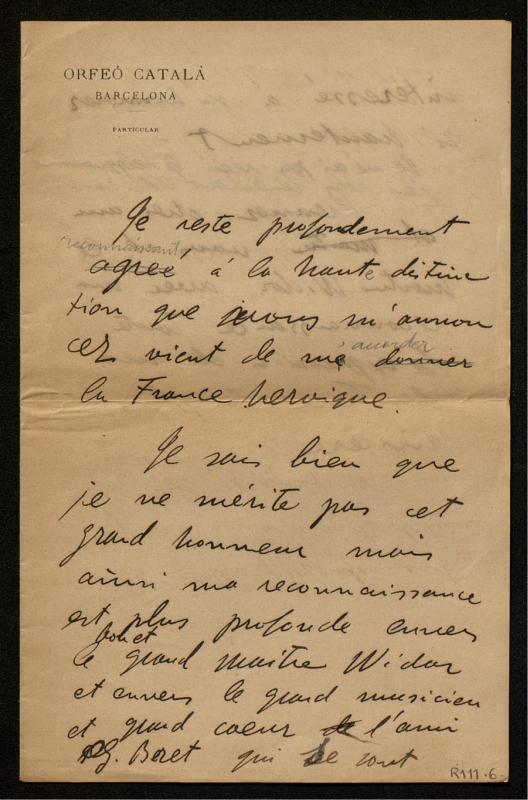 ORFEÓ CATALÀ
BARCELONA
PARTICULAR
Je reste profondement
reconnaissant
agreé, á la haute distinc
tion que vous m'annon
cez vient de me donner
accorder
la France heroique.
Je sais bien que
je ne mérite pas cet
grand honneur mais
ainsi ma reconnaissance
est plus profonde envers
le grand maitre Widor
et envers le grand musicien
et grand coeur de l'ami
G. Beret qui se sont
R111-6